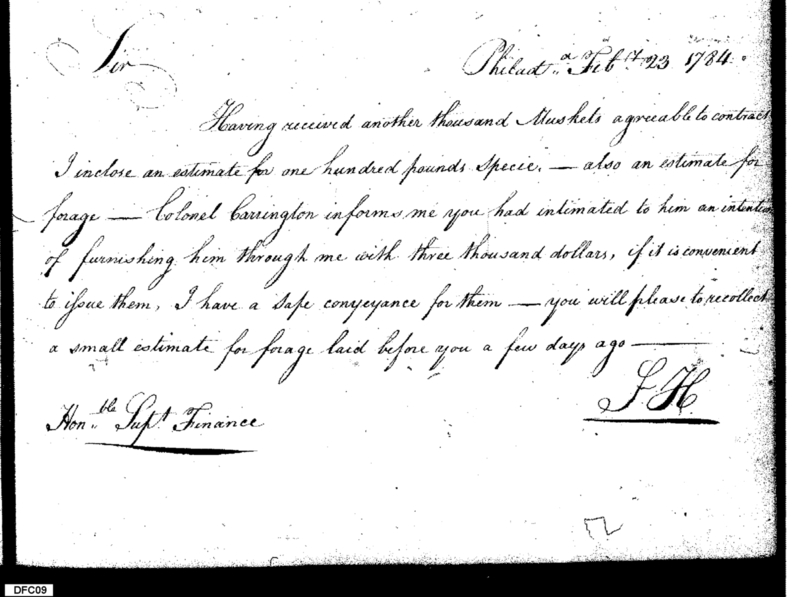 Sir
Philad.a Feby 23 1784.
Having received another thousand Muskets agreeable to contract
I inclose an estimate for one hundred pounds Specie. — also an estimate for
forage — Colonel Carrington informs me you had intimated to him an intention
of furnishing him through me with three thousand dollars, if it is convenient
to issue them, I have a safe conveyance for them — you will please to recollect
a small estimate for forage laid before you a few days ago —
S H
Hon.ble Supt Finance
DFC09